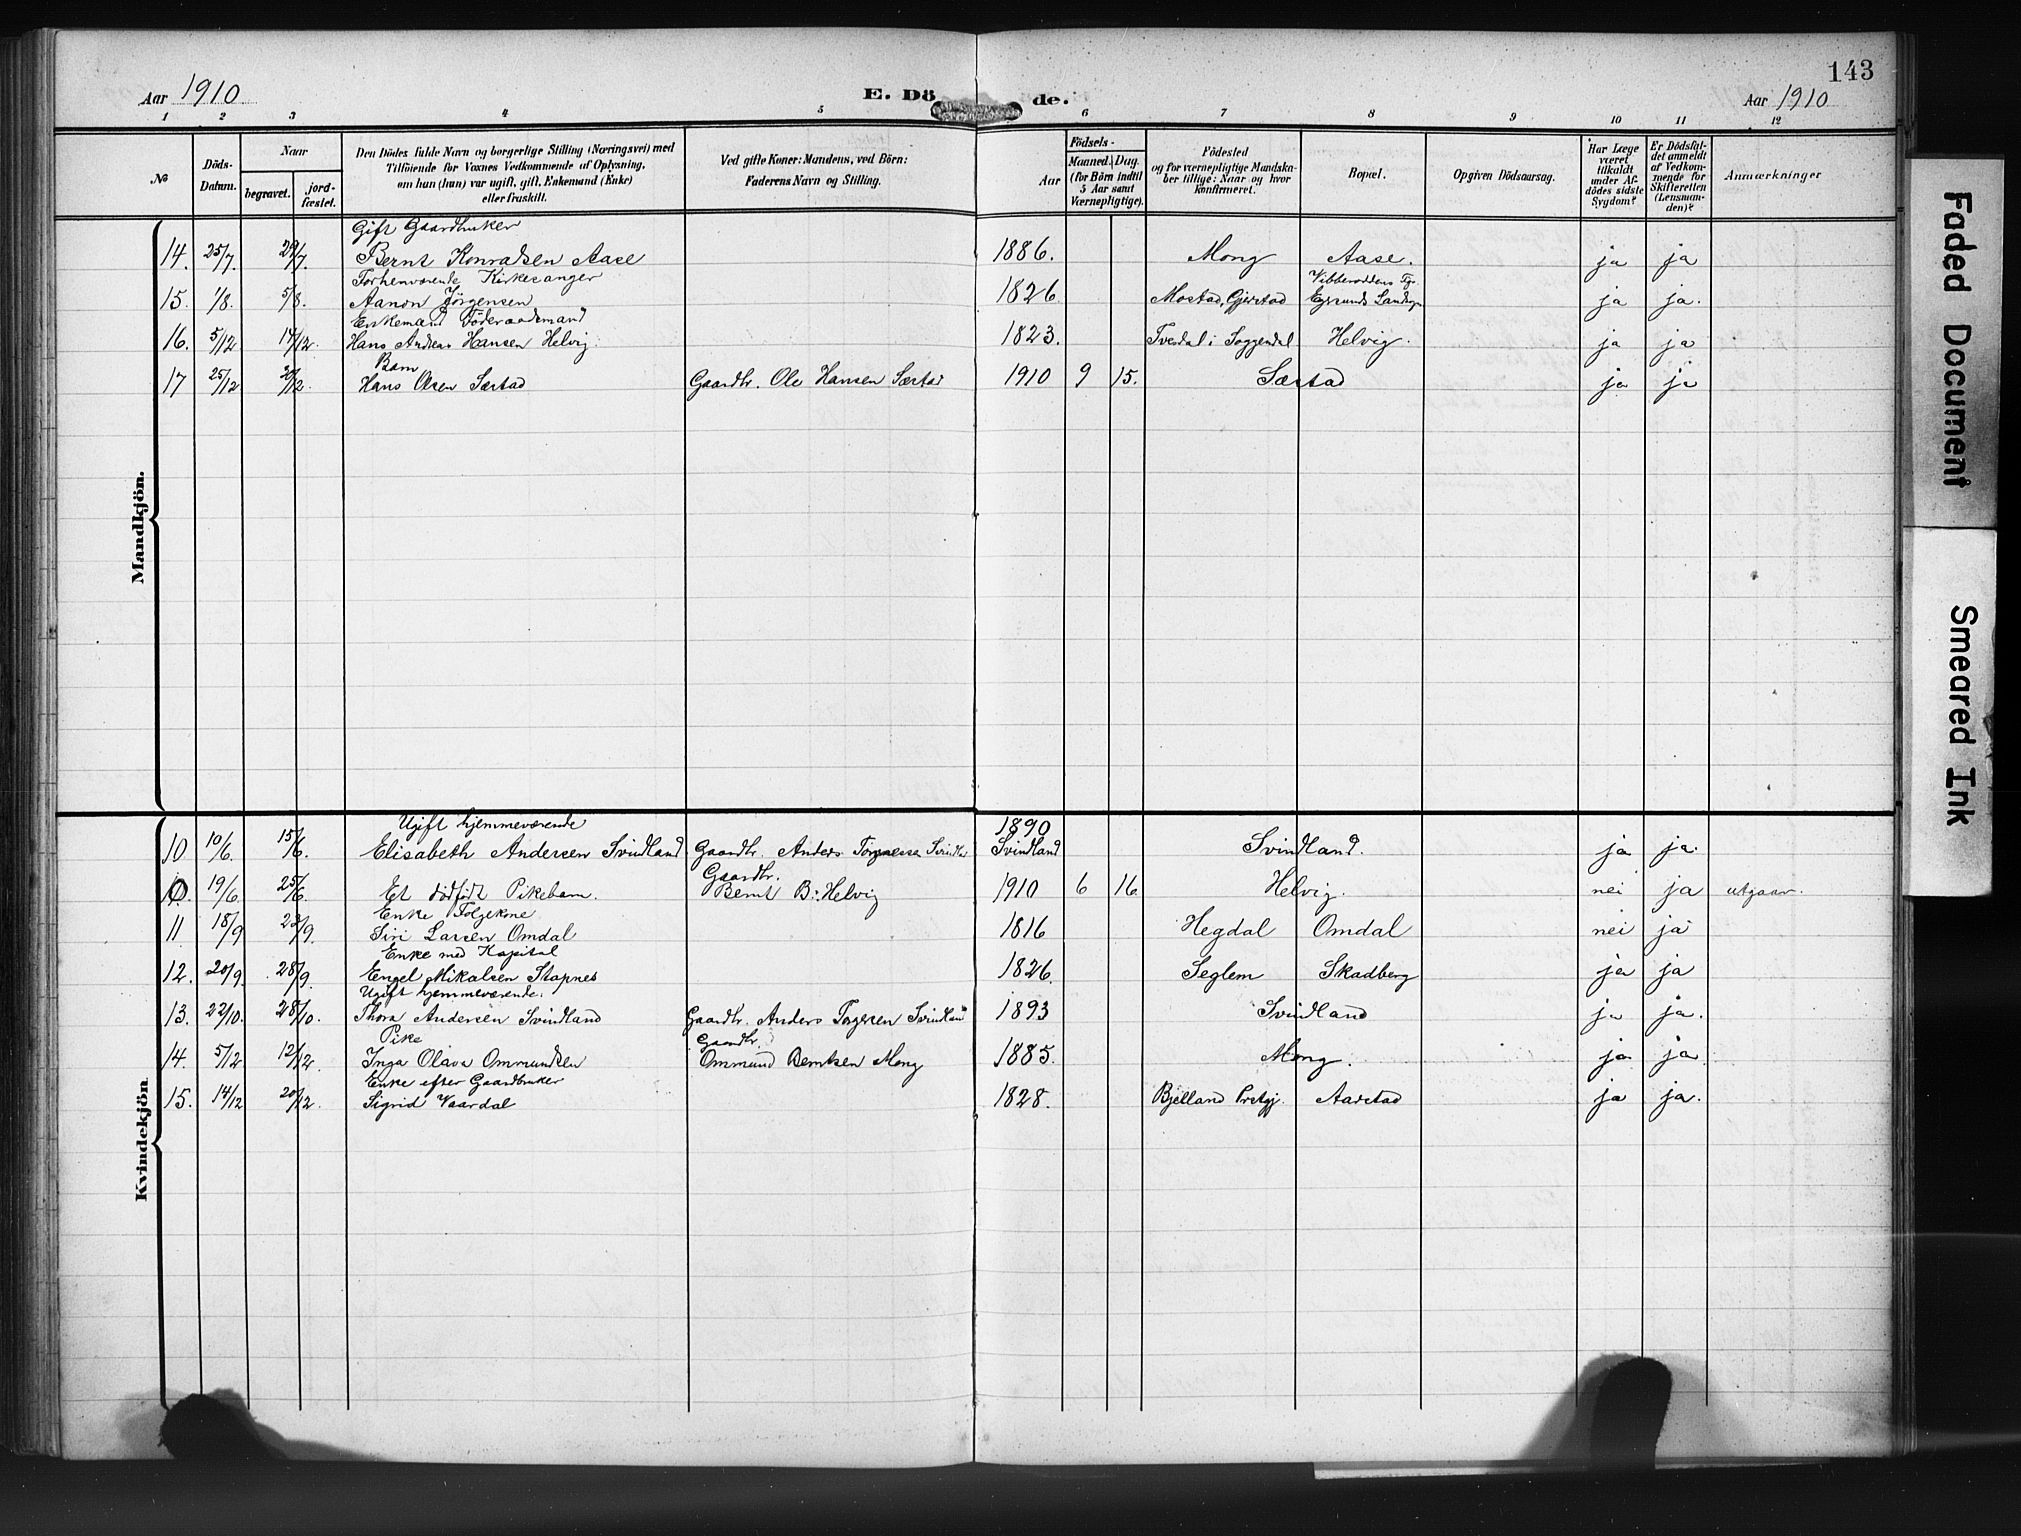 143
Aar 1910 E. Dö de. Aar 1910
1 2 3 4 5 6 7 8 9 10 11 12
№
Döds-
Datum.
Naar
begravet.
jord-
fæstet.
Den Dödes fulde Navn og borgerlige Stilling (Næringsvei) med
Tilföiende for Voxnes Vedkommende af Oplysning,
om han (hun) var ugift, gift, Enkemand (Enke)
eller fraskilt.
Ved gifte Koner: Mandens, ved Börn:
Faderens Navn og Stilling.
Födsels-
Aar
Maaned. Dag.
(for Börn indtil
5 Aar samt
Værnepligtige).
Födested
og for værnepligtige Mandska-
ber tillige: Naar og hvor
konfirmeret.
Bopæl.
Opgiven Dödsaarsag.
Har Læge
været
tilkaldt
under Af-
dödes sidste
Sygdom?
Er Dödsfal-
det anmeldt
af Vedkom-
mende for
Skifteretten
(Lensman-
den)?
Anmærkninger
Mandkjön.
Gift Gaardbruker
14. 25/7. 29/7. Bernt Konradsen Aase 1886. Mong Aase. ja ja
Forhenværende Kirkesanger Vibberoddens
15. 1/8. 5/8. Aanon Jörgensen 1826 Mostad, Gjerstad Egersunds Landsogn ja ja.
Enkemand Föderaadsmand
16. 5/12 14/12. Hans Andreas Hansen Helvig 1823. Tverdal i Soggendal Helvig. ja ja
Barn
17 25/12 /12. Hans Olsen Sæstad Gaardbr. Ole Hansen Sæstad 1910 9 15. Sæstad ja ja
Kvindekjön.
Ugift hjemmeværende 1890
10 10/6. 15/6. Elisabeth Andersen Svindland Gaardbr. Anders Svindland. ja ja.
Svindland
Gaardbr.
10. 19/6. 25/6. Et dödfödt Pikebarn. Bernt B. Helvig 1910 6 16 Helvig. nei ja utgaar.
Enke Folgekone
11 18/9 23/9. Siri Larsen Omdal 1816 Hegdal Omdal nei ja
Enke med Kapital
12. 20/9. 28/9. Engel Mikalsen Stapnes 1826. Seglem Skadberg ja ja
Ugift hjemmeværende.
13. 22/10. 28/10. Thora Andersen Svindland Gaardbr. Anders Torgersen Svindland 1893 Svindland ja ja.
Pike Gaardbr.
14. 5/12 12/12. Inga Olava Ommundsen Ommund Berntsen Mong 1885. Mong. ja ja
Enke efter Gaardbruker
15. 14/12 20/12. Sigrid Vaardal 1828. Bjelland Prstgj. Aarstad ja ja.
Faded Document
Smeared Ink